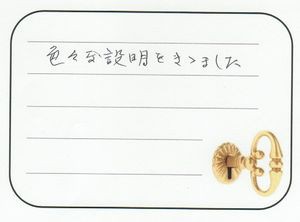 色々な説明をきゝました